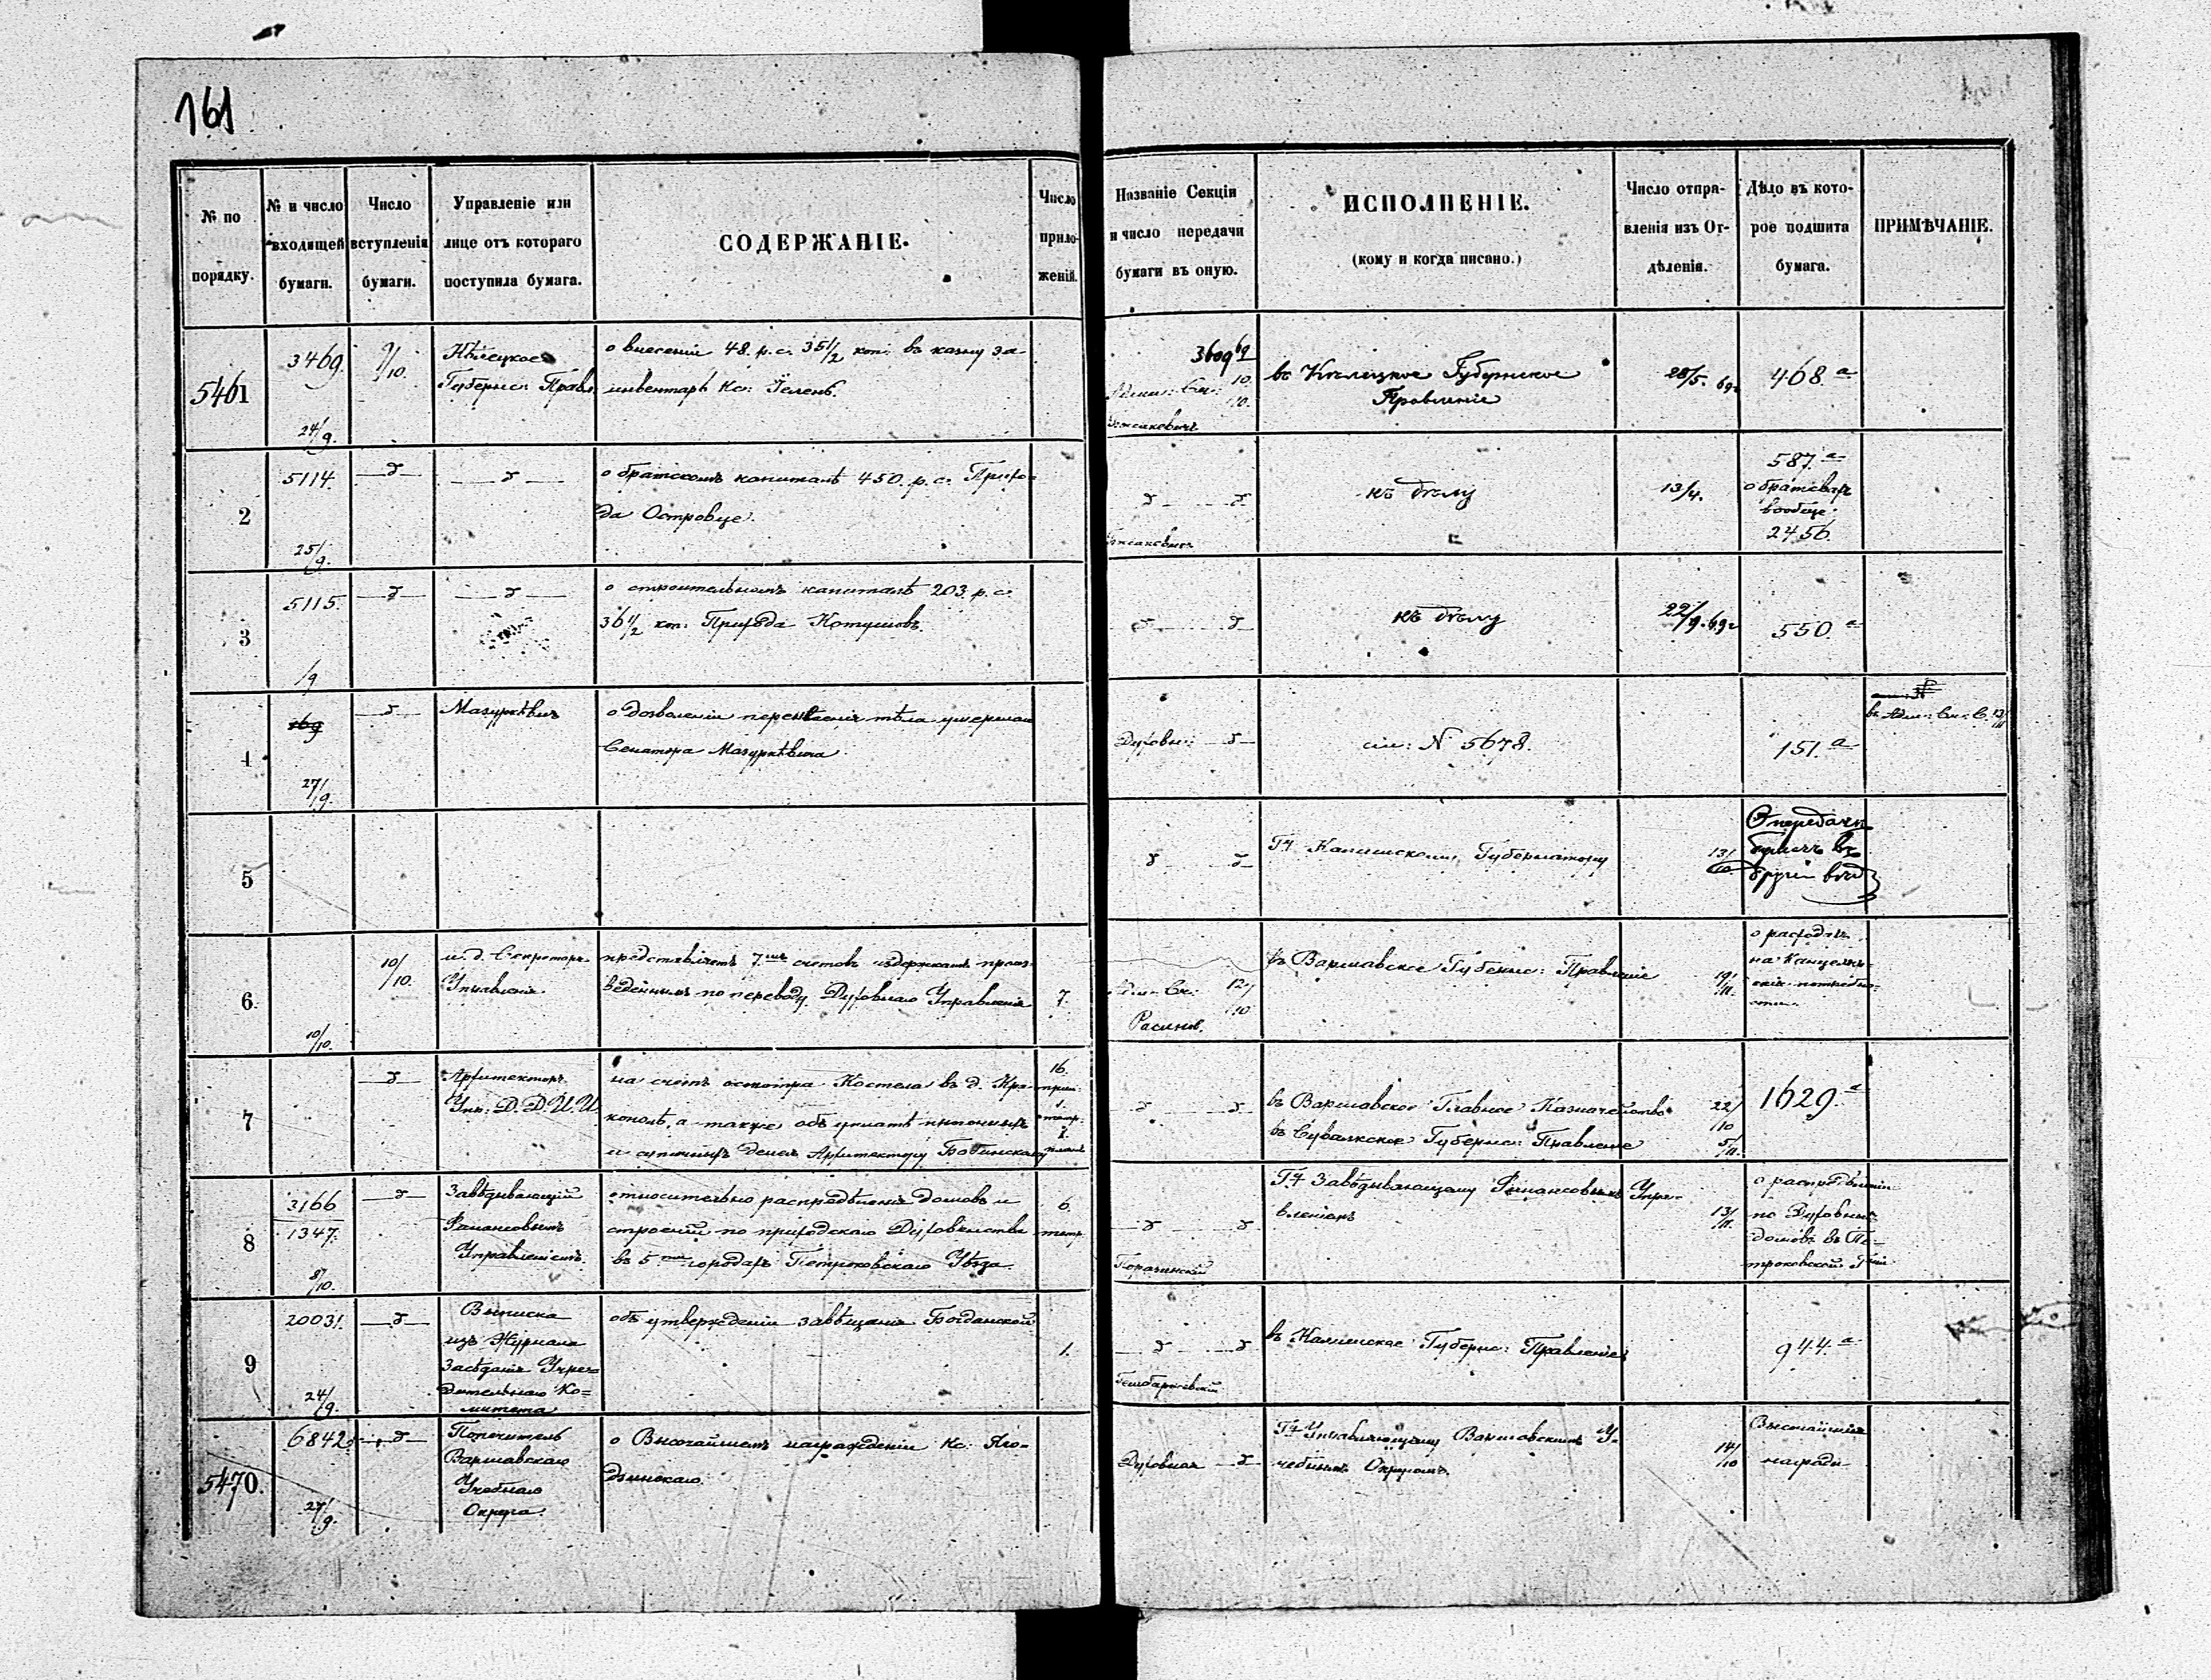 161
№ по порядку.
№ и число входящей бумаги.
Число вступленія бумаги.
Управленіе или лице отъ котораго поступила бумага.
СОДЕРЖАНІЕ.
Число приложеній.
Названіе Секціи и число передачи бумаги въ оную.
ИСПОЛНЕНІЕ.
(кому и когда писано.)
Число отправленія изъ Отдѣленія.
Дѣло въ которое подшита бумага.
ПРИМѢЧАНІЕ.
5461
3469.
24/9.
9/10.
Кѣлецкое
Губернс: Правл.
о внесеніи 48. р. с. 35 1/2 коп: въ казну за
инвентарь Кс:
10/10.
въ Кѣлецкое Губернское
Правленіе
28/5. 69.
468. а
2
5114.
25/9.
о братскомъ капиталѣ 450. р. с. Прихо-
да Островце.
къ дѣлу
13/4.
587. а
о братствахъ
вообще.
2456.
3
5115.
/9
о строительномъ капиталѣ 203. р. с.
36 1/2 коп: Прихода Котушовъ.
къ дѣлу
22/9. 69
550. а
4
27/9.
Мазуркѣвичъ
о дозволеніи перенесенія тѣла умершаго
Сенатора Мазуркѣвича.
Духовн:
N 5678.
151. а
5
ГЧ Калишскому Губернатору
13/
О передачѣ
бумагъ въ
другія вѣд
6.
10/10.
10/10.
и. д. Секретаря
Управленія.
представляетъ 7. счетовъ издержкамъ произ-
веденнымъ по переводу Духовнаго Управленія
7.
12/10
въ Варшавское Губернс: Правленіе
19/11.
о расходахъ
на Канцеляр-
скія потребно-
сти.
7
Архитекторъ
Упр: Д. Д. И. И.
на счетъ осмотра Костела въ д. Кра-
кополь, а также объ уплатѣ прогонныхъ
и суточныхъ денегъ Архитектору
16.
1.
въ Варшавское Главное Казначейство
въ Сувалкское Губернс: Правленіе
22/10
5/11.
1629. а
8
3166
1347.
8/10.
Завѣдывающій
Финансовымъ
Управленіемъ.
относительно распредѣленія домовъ и
строеній по приходскаго Духовенства
въ 5 городахъ Петроковскаго Уѣзда.
6.
тетр.
ГЧ Завѣдывающему Финансовымъ Упра-
вленіемъ
13/11.
о распредѣленіи
по Духовныхъ
домовъ въ Пе-
троковской Гіи
9
20031.
24/9.
Выписка
изъ Журнала
Засѣданія Учре-
дительнаго Ко=
митета
объ утвержденіи завѣщанія Богданской
1.
въ Калишское Губернс: Правленіе
944. а
5470.
6842.
27/9.
Попечитель
Варшавскаго
Учебнаго
Округа.
о Высочайшемъ награжденіи Кс: Яго-
дзинскаго.
Духовная
ГЧ Управляющему Варшавскимъ У-
чебнымъ Округомъ.
14/10
Высочайшія
награды